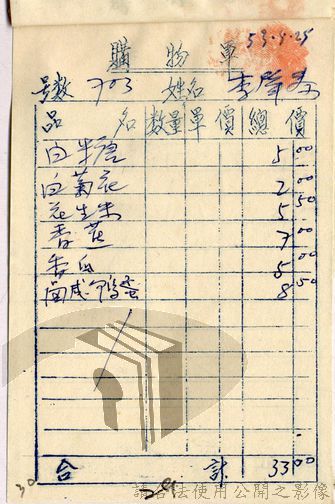 購物單
53.9.25
号數 703 姓名
品名 數量 單價 總價
白米唐 5.00
白菊花 2.00
花生米 5.50
香蕉 7.00
5.00
咸鴨蛋 8.50
合計 33.00
30
請合法使用公開之影像